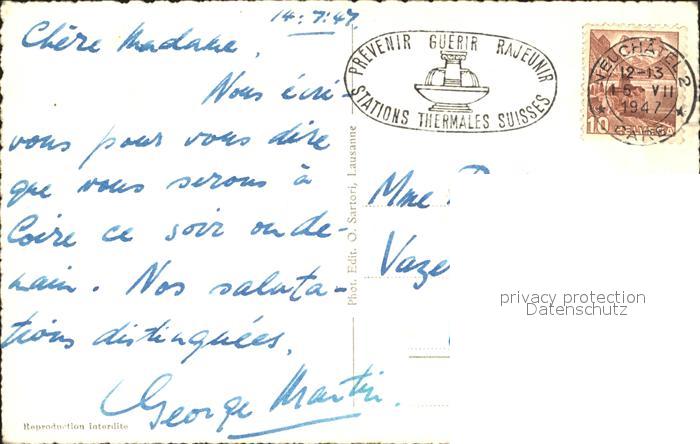 14.7.47
Chère Madame,
Nous écri-
vons pour vous dire
que vous serons à
Coire ce soir ou de-
main. Nos saluta-
tions distinguées,
George Martin.
Reproduction interdite
Phot. Edit. O. Sartori, Lausanne
PRÉVENIR GUÉRIR RAJEUNIR
STATIONS THERMALES SUISSES
NEUCHÂTEL 2
12-13
15. VII
1947
GARE
10
HELVETIA
Mme
Vaze
privacy protection
Datenschutz